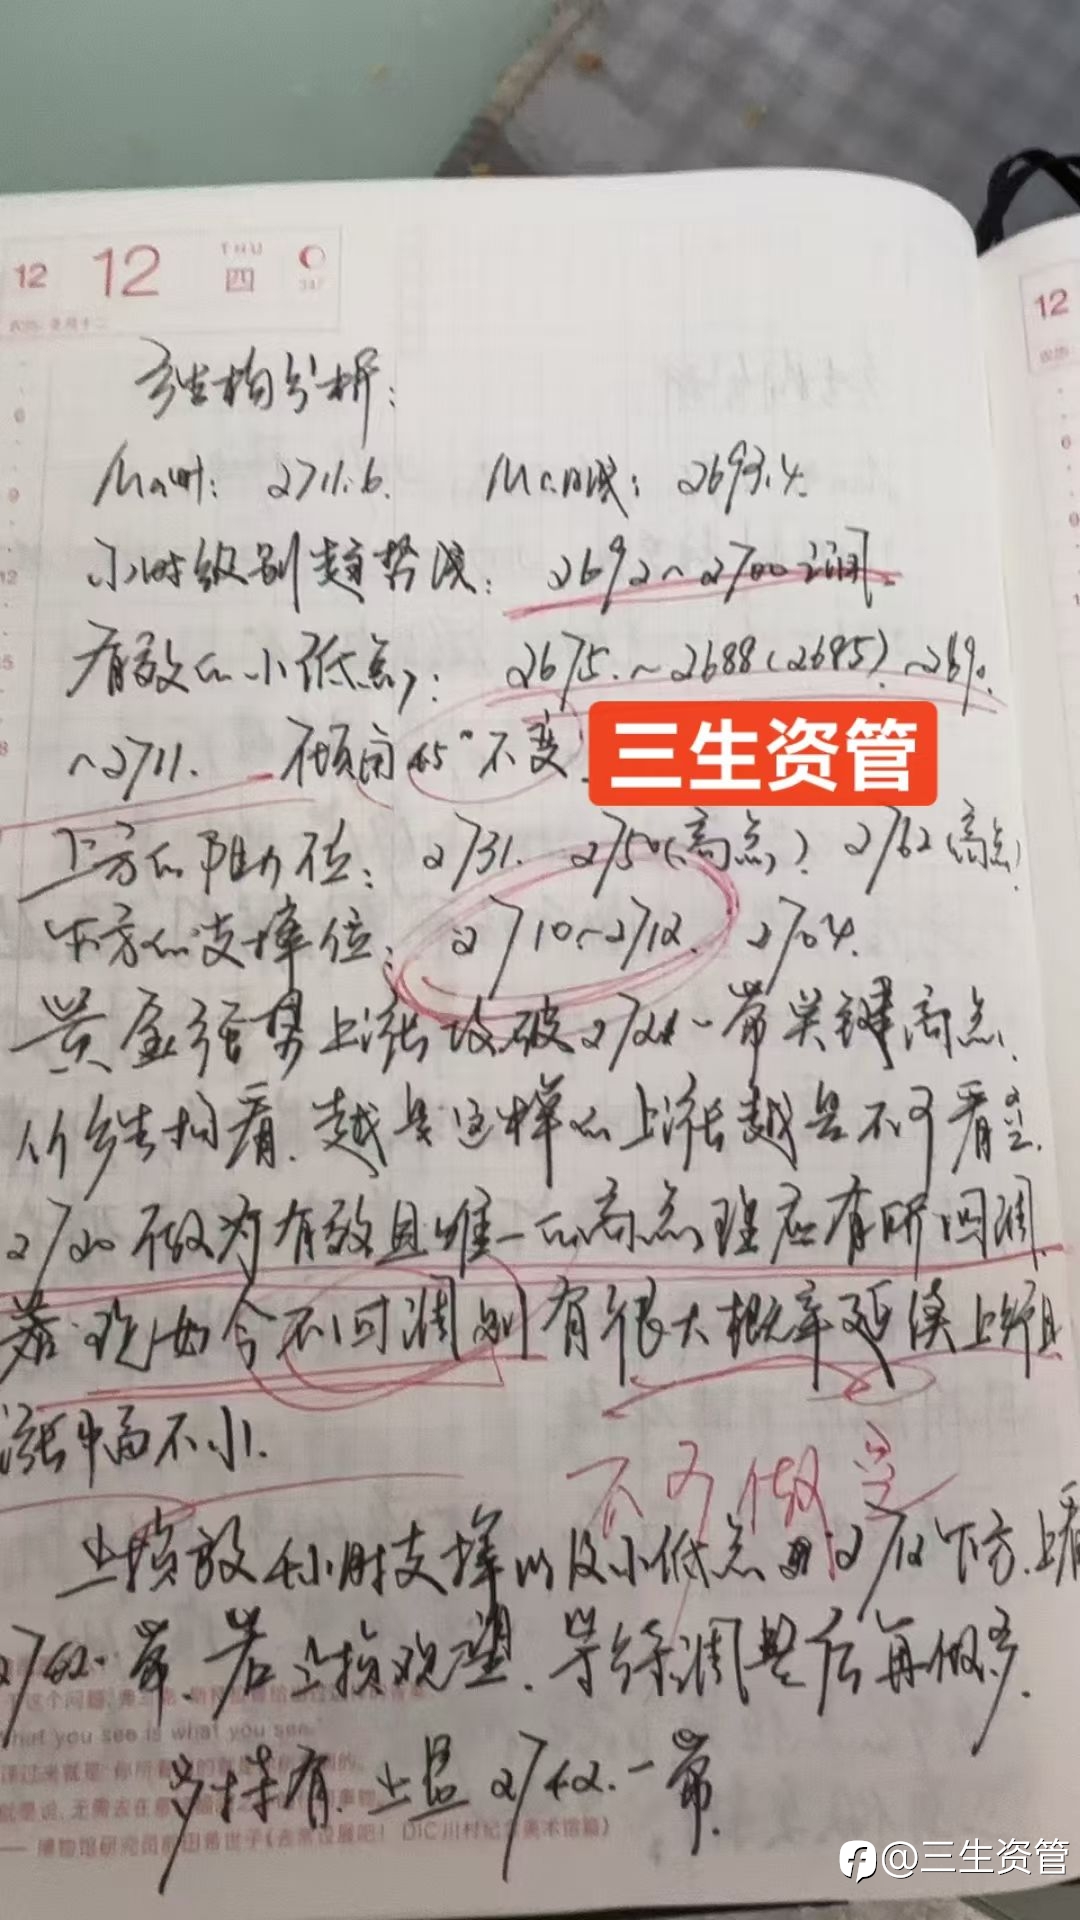 12 12 THU 四
12
结构分析：
Ma时：2711.6. Ma日线：2693.4.
小时级别趋势线：2692～2700之间.
有效的小低点：2675.～2688(2685).～2690.
～2711. 倾角45°不变.
三生资管
上方的阻力位：2731. 2750(高点) 2762(高点)
下方的支撑位：2710～2712. 2704.
黄金强势上涨攻破272一带关键高点.
价结构看.越是这样的上涨越是不可看空.
2720做为有效且唯一的高点理应有所回调.
若现如今不回调则有很大概率延续上行且
涨幅不小.
不可做空
止损放4小时支撑以及小低点2712下方.上看
2762一带.若止损观望.等待调整后再做多.
hat you see is what you see."
多持有.止盈2742.一带.
DIC川村纪念美术馆篇)
@三生资管